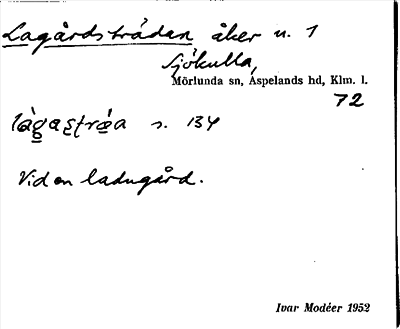 Lagårdsträdan åker n. 1
Sjökulla,
Mörlunda sn, Aspelands hd, Klm. l.
72
s. 134
Vid en ladugård.
Ivar Modéer 1952